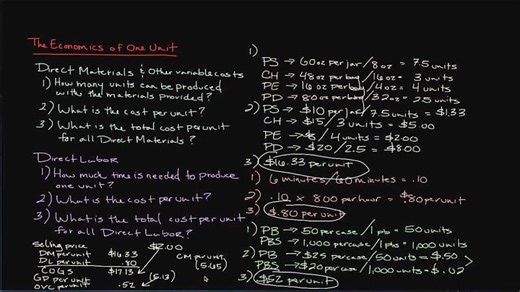 The Economics of One Unit
Direct Materials & Other variable costs
1) How many units can be produced
with the materials provided?
2) What is the cost per unit?
3) What is the total cost per unit
for all Direct Materials?
Direct Labor
1) How much time is needed to produce
one unit?
2) What is the cost per unit?
3) What is the total cost per unit
for all Direct Labor?
Selling price $12.00
DM per unit $16.33
DL per unit .80
COGS $17.13
GP per unit (5.13)
OVC per unit .52
CM per unit
(5.65)
1)
PS → 60oz per jar/8oz = 7.5 units
CH → 48oz per bag/16oz = 3 units
PE → 16oz per bag/4oz = 4 units
PD → 80oz per bag/32oz = 2.5 units
2) PS → $10 per jar/7.5 units = $1.33
CH → $15/3 units = $5.00
PE → $8/4 units = $2.00
PD → $20/2.5 = $8.00
3) $16.33 per unit
1) 6 minutes/60 minutes = .10
2) .10 x 800 per hour = $.80 per unit
3) $.80 per unit
1) PB → 50 per case/1 pb = 50 units
PBS → 1,000 per case/1 pbs = 1,000 units
2) PB → $25 per case/50 units = $.50
PBS → $20 per case/1,000 units = $.02
3) $.52 per unit